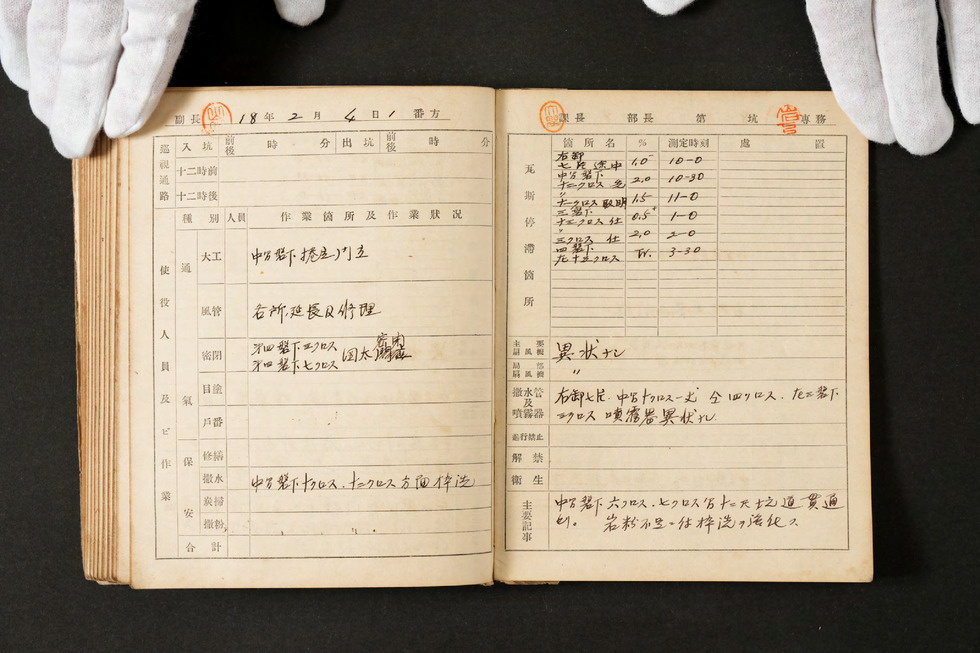 副長 18年2月4日1番方
巡視通路 入坑 前後 時 分 出坑 前後 時 分
十二時前
十二時後
種別 人員 作業箇所及作業狀況
使役人員及ビ作業
通氣
大工 中卸盤下捲立門立
風管 各所、延長及修理
密閉 第四盤下三クロス
第四盤下七クロス
目塗
戶番
保安
修繕
撒水 中卸盤下十クロス、十二クロス方面枠洗
炭掃
撒粉
合計
課長 部長 第 坑 專務
瓦斯停滯箇所
箇所名 % 測定時刻 處置
右卸
七片 途中 1.0 10-0
中卸盤下
十二クロス 2.0 10-30
〃
十一クロス 1.5 11-0
三盤下
十三クロス 仕 0.5 1-0
〃
三クロス 仕 2.0 2-0
四盤下
左十三クロス Tr. 3-30
主要扇風機 異狀ナシ
局部扇風機 〃
撒水管及噴霧器 右卸七片、中卸十クロス 仝四クロス、左三盤下
三クロス 噴霧器異狀ナシ
進行禁止
解禁
衛生
主要記事 中卸盤下六クロス、七クロス 貫通
岩粉不足 枠洗ヲ强化ス